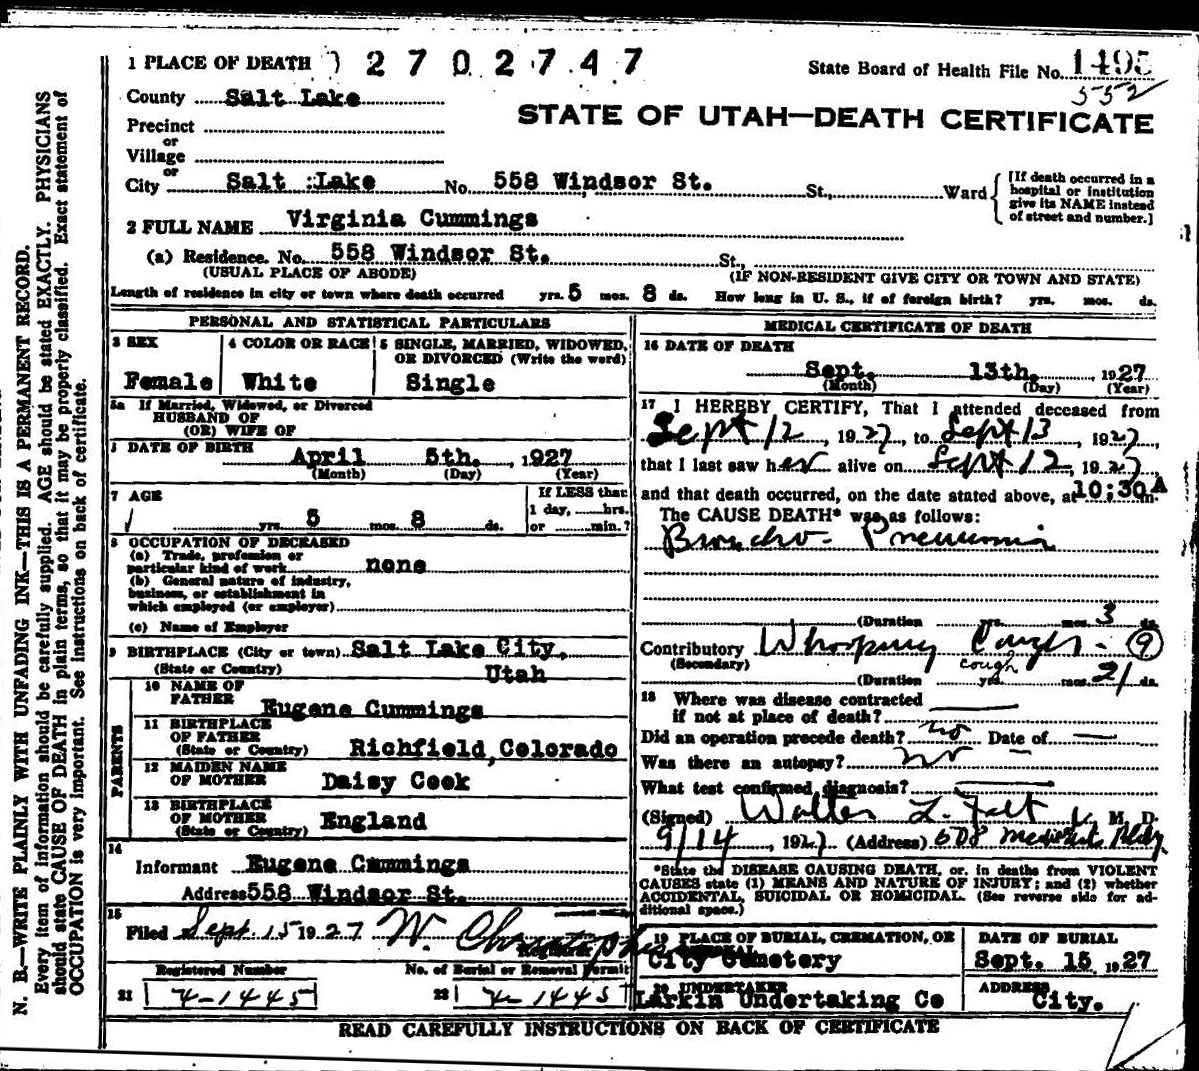 1 PLACE OF DEATH 2702747
State Board of Health File No. 1495
552
County Salt Lake
STATE OF UTAH—DEATH CERTIFICATE
Precinct
or
Village
or
City Salt Lake No. 558 Windsor St. St., Ward
[If death occurred in a hospital or institution give its NAME instead of street and number.]
2 FULL NAME Virginia Cummings
(a) Residence. No. 558 Windsor St. St.,
(USUAL PLACE OF ABODE) (IF NON-RESIDENT GIVE CITY OR TOWN AND STATE)
Length of residence in city or town where death occurred yrs. 5 mos. 8 ds. How long in U. S., if of foreign birth? yrs. mos. ds.
PERSONAL AND STATISTICAL PARTICULARS
3 SEX
Female
4 COLOR OR RACE
White
5 SINGLE, MARRIED, WIDOWED,
OR DIVORCED (Write the word)
Single
5a If Married, Widowed, or Divorced
HUSBAND OF
(OR) WIFE OF
DATE OF BIRTH
April 5th. , 1927
(Month) (Day) (Year)
7 AGE
yrs. 5 mos. 8 ds.
If LESS than
1 day, hrs.
or min.?
8 OCCUPATION OF DECEASED
(a) Trade, profession or
particular kind of work none
(b) General nature of industry,
business, or establishment in
which employed (or employer)
(c) Name of Employer
9 BIRTHPLACE (City or town) Salt Lake City,
(State or Country) Utah
PARENTS
10 NAME OF
FATHER Eugene Cummings
11 BIRTHPLACE
OF FATHER
(State or Country) Richfield, Colorado
12 MAIDEN NAME
OF MOTHER Daisy Cook
13 BIRTHPLACE
OF MOTHER
(State or Country) England
14
Informant Eugene Cummings
Address 558 Windsor St.
15
Filed Sept. 15 1927 W. Christopher
Registrar
Registered Number No. of Burial or Removal Permit
21 4-1445 22 4-1445
MEDICAL CERTIFICATE OF DEATH
16 DATE OF DEATH
Sept. 13th. , 1927
(Month) (Day) (Year)
17 I HEREBY CERTIFY, That I attended deceased from
Sept 12, 1927, to Sept 13, 1927,
that I last saw her alive on Sept 12, 1927,
and that death occurred, on the date stated above, at 10:30 A m.
The CAUSE DEATH* was as follows:
Broncho-Pneumonia
(Duration yrs. mos. 3 ds.
Contributory Whooping Cough - 9
(Secondary) cough
(Duration yrs. mos. 21 ds.
18 Where was disease contracted
if not at place of death?
Did an operation precede death? no Date of
Was there an autopsy? no
What test confirmed diagnosis?
(Signed) Walter L. , M. D.
9/14, 1927 (Address) 608 Bldg
*State the DISEASE CAUSING DEATH, or, in deaths from VIOLENT
CAUSES state (1) MEANS AND NATURE OF INJURY; and (2) whether
ACCIDENTAL, SUICIDAL OR HOMICIDAL. (See reverse side for ad-
ditional space.)
19 PLACE OF BURIAL, CREMATION, OR
City Cemetery
DATE OF BURIAL
Sept. 15, 1927
20 UNDERTAKER
Larkin Undertaking Co
ADDRESS
City.
READ CAREFULLY INSTRUCTIONS ON BACK OF CERTIFICATE
N. B.—WRITE PLAINLY WITH UNFADING INK—THIS IS A PERMANENT RECORD.
Every item of information should be carefully supplied. AGE should be stated EXACTLY. PHYSICIANS
should state CAUSE OF DEATH in plain terms, so that it may be properly classified. Exact statement of
OCCUPATION is very important. See instructions on back of certificate.